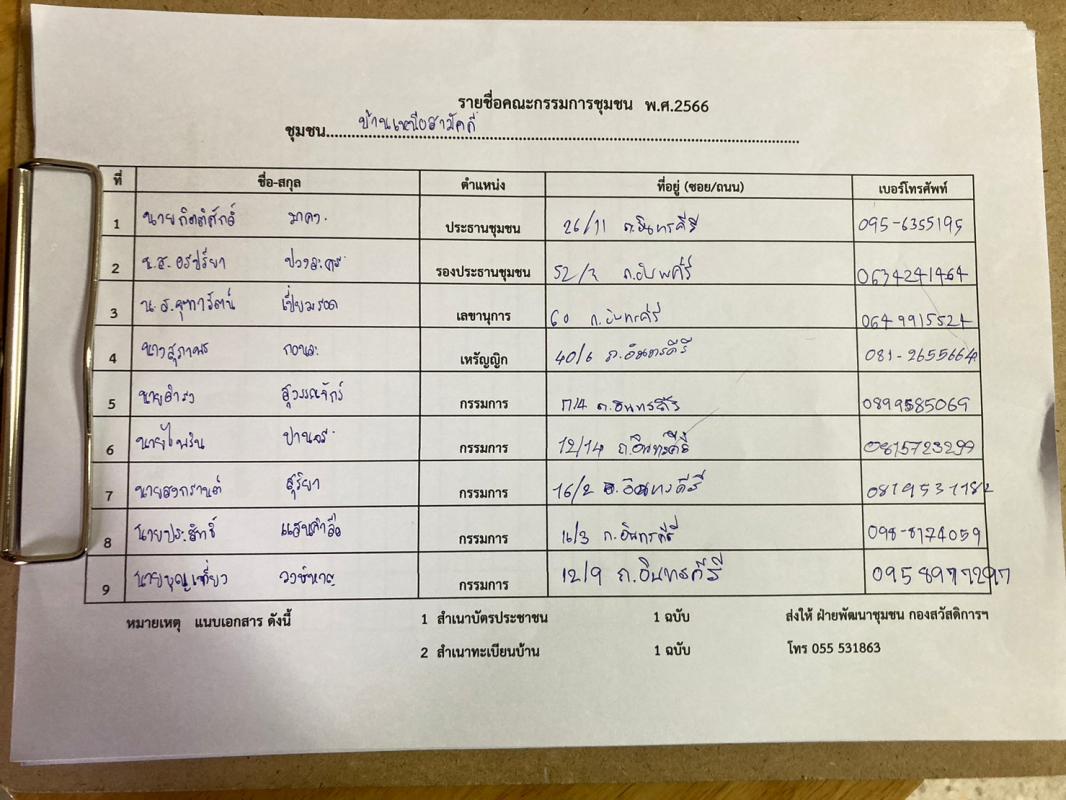 รายชื่อคณะกรรมการชุมชน พ.ศ.2566
ชุมชน....บ้านเหนือสามัคคี....
ที่ ชื่อ-สกุล ตำแหน่ง ที่อยู่ (ซอย/ถนน) เบอร์โทรศัพท์
1 นายกิตติศักดิ์ มาคำ ประธานชุมชน 26/11 ถ.อินทรคีรี 095-6355195
2 น.ส. อรปรียา รองประธานชุมชน 52/3 0634241464
3 น.ส.จุฑารัตน์ เปี่ยมรอด เลขานุการ 60 ถ.อินทรคีรี 0649915524
4 นางสุภาพร เหรัญญิก 40/6 ถ.อินทรคีรี 081-2655664
5 นายดำรง สุวรรณจักร์ กรรมการ ถ.อินทรคีรี 0899585069
6 นายไพริน กรรมการ 12/14 ถ.อินทรคีรี 0815723299
7 นายสงกรานต์ สุริยา กรรมการ 16/2 ถ.อินทรคีรี 0819531182
8 นายประสิทธิ์ แสนคำลือ กรรมการ 16/3 ถ.อินทรคีรี 098-8174059
9 นายบุญเที่ยง วงษ์หาญ กรรมการ 12/9 ถ.อินทรคีรี 0958977297
หมายเหตุ แนบเอกสาร ดังนี้ 1 สำเนาบัตรประชาชน 1 ฉบับ ส่งให้ ฝ่ายพัฒนาชุมชน กองสวัสดิการฯ
2 สำเนาทะเบียนบ้าน 1 ฉบับ โทร 055 531863